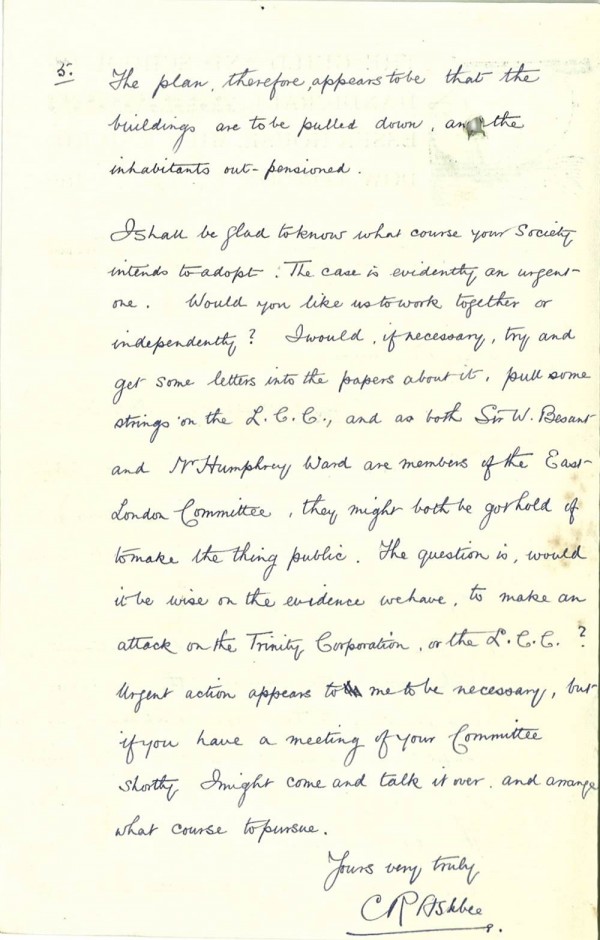 5. The plan, therefore, appears to be that the
buildings are to be pulled down, and the
inhabitants out-pensioned.
I shall be glad to know what course your Society
intends to adopt. The case is evidently an urgent
one. Would you like us to work together or
independently? I would, if necessary, try and
get some letters into the papers about it, pull some
strings on the L.C.C., and as both Sir W. Besant
and Mr Humphrey Ward are members of the East
London Committee, they might both be got hold of
to make the thing public. The question is, would
it be wise on the evidence we have, to make an
attack on the Trinity Corporation, or the L.C.C.?
Urgent action appears to me to be necessary, but
if you have a meeting of your Committee
shortly I might come and talk it over, and arrange
what course to pursue.
Yours very truly
C R Ashbee